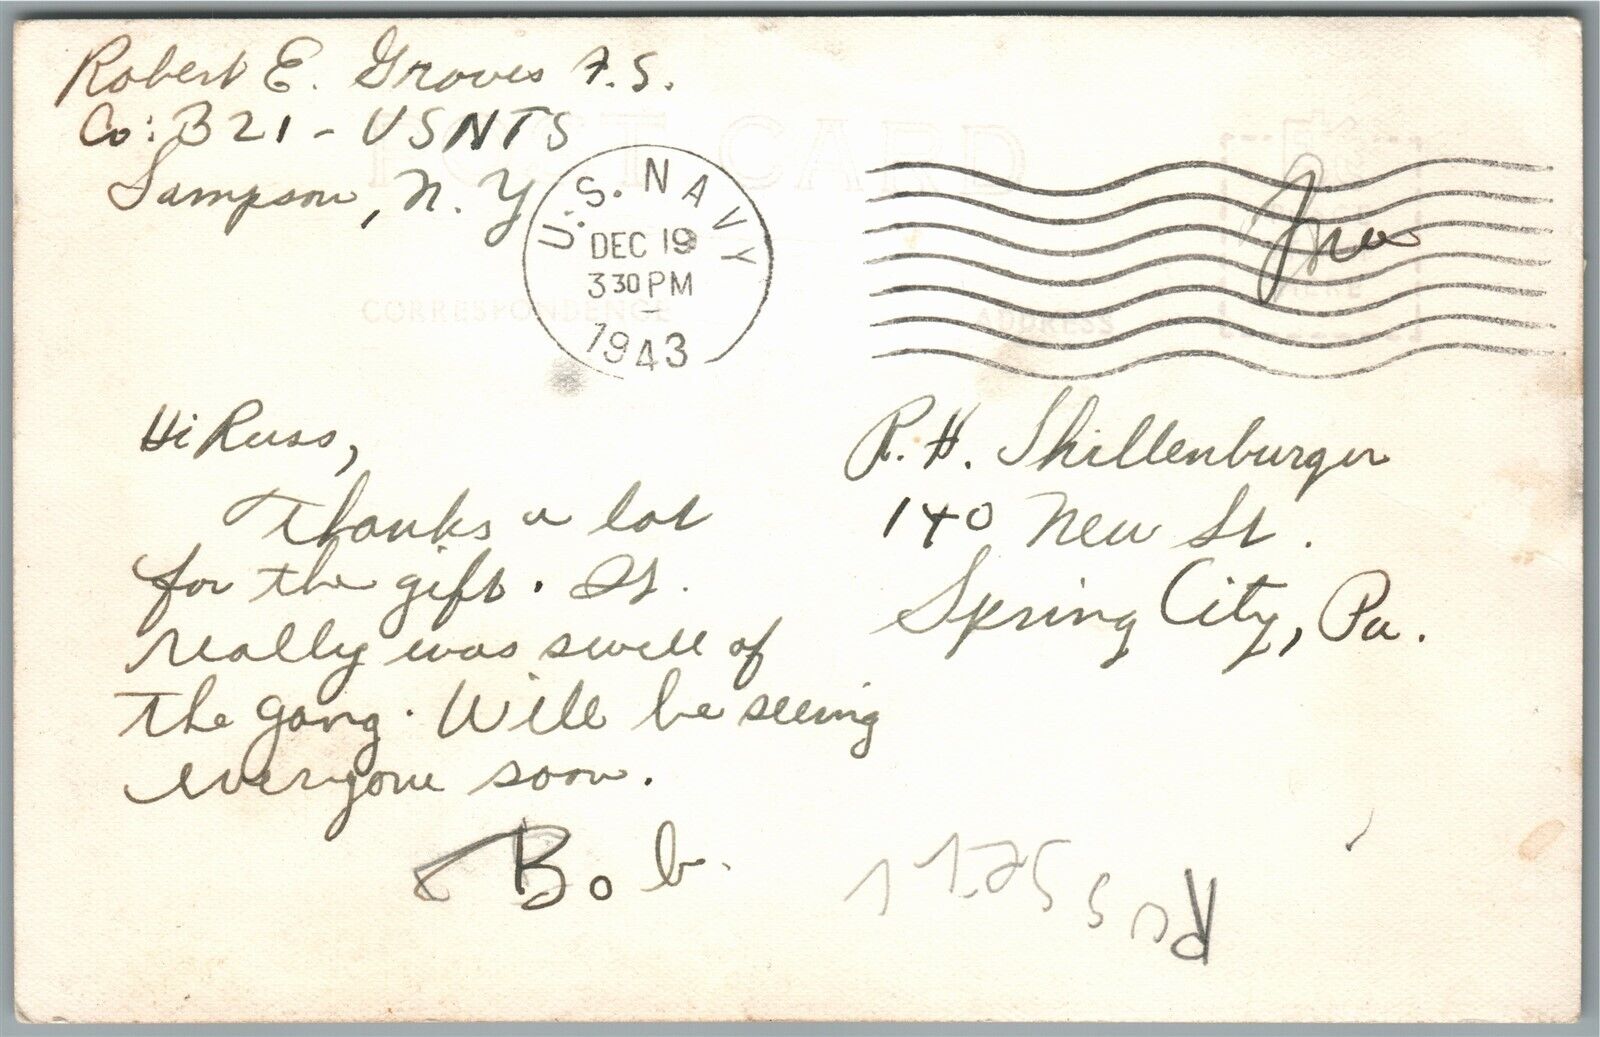 Robert E. Groves F.S.
Co: B21 - USNTS
Sampson, N.Y
POST CARD
U.S. NAVY
DEC 19
3 30 PM
1943
Free
PLACE
STAMP
HERE
CORRESPONDENCE
ADDRESS
Hi Russ,
Thanks a lot
for the gift. It
really was swell of
the gang. Will be seeing
everyone soon.
Bob.
R. H. Shillenburger
140 New St.
Spring City, Pa.
Russell